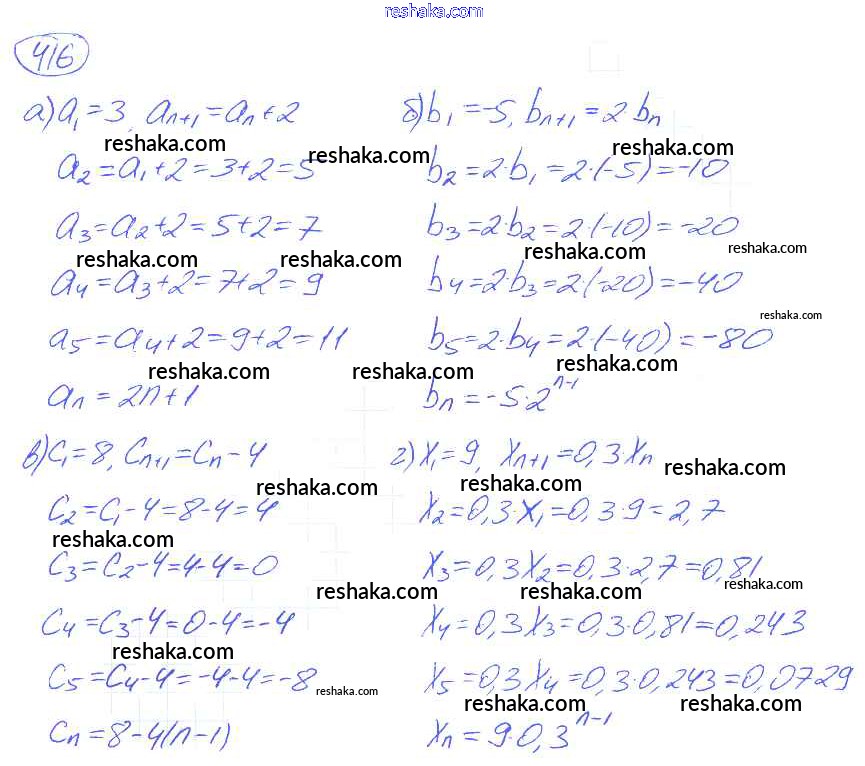 reshaka.com
416
а) a₁ = 3, aₙ₊₁ = aₙ + 2
reshaka.com
reshaka.com
a₂ = a₁ + 2 = 3 + 2 = 5
a₃ = a₂ + 2 = 5 + 2 = 7
reshaka.com
reshaka.com
a₄ = a₃ + 2 = 7 + 2 = 9
a₅ = a₄ + 2 = 9 + 2 = 11
reshaka.com
reshaka.com
aₙ = 2n + 1
б) b₁ = -5, bₙ₊₁ = 2·bₙ
reshaka.com
b₂ = 2·b₁ = 2·(-5) = -10
b₃ = 2·b₂ = 2·(-10) = -20
reshaka.com
reshaka.com
b₄ = 2·b₃ = 2·(-20) = -40
reshaka.com
b₅ = 2·b₄ = 2·(-40) = -80
reshaka.com
bₙ = -5·2ⁿ⁻¹
в) c₁ = 8, cₙ₊₁ = cₙ - 4
reshaka.com
c₂ = c₁ - 4 = 8 - 4 = 4
reshaka.com
c₃ = c₂ - 4 = 4 - 4 = 0
reshaka.com
c₄ = c₃ - 4 = 0 - 4 = -4
reshaka.com
c₅ = c₄ - 4 = -4 - 4 = -8
reshaka.com
reshaka.com
cₙ = 8 - 4(n - 1)
г) x₁ = 9, xₙ₊₁ = 0,3xₙ
reshaka.com
reshaka.com
x₂ = 0,3·x₁ = 0,3·9 = 2,7
x₃ = 0,3x₂ = 0,3·2,7 = 0,81
reshaka.com
reshaka.com
x₄ = 0,3x₃ = 0,3·0,81 = 0,243
x₅ = 0,3x₄ = 0,3·0,243 = 0,0729
reshaka.com
reshaka.com
xₙ = 9·0,3ⁿ⁻¹